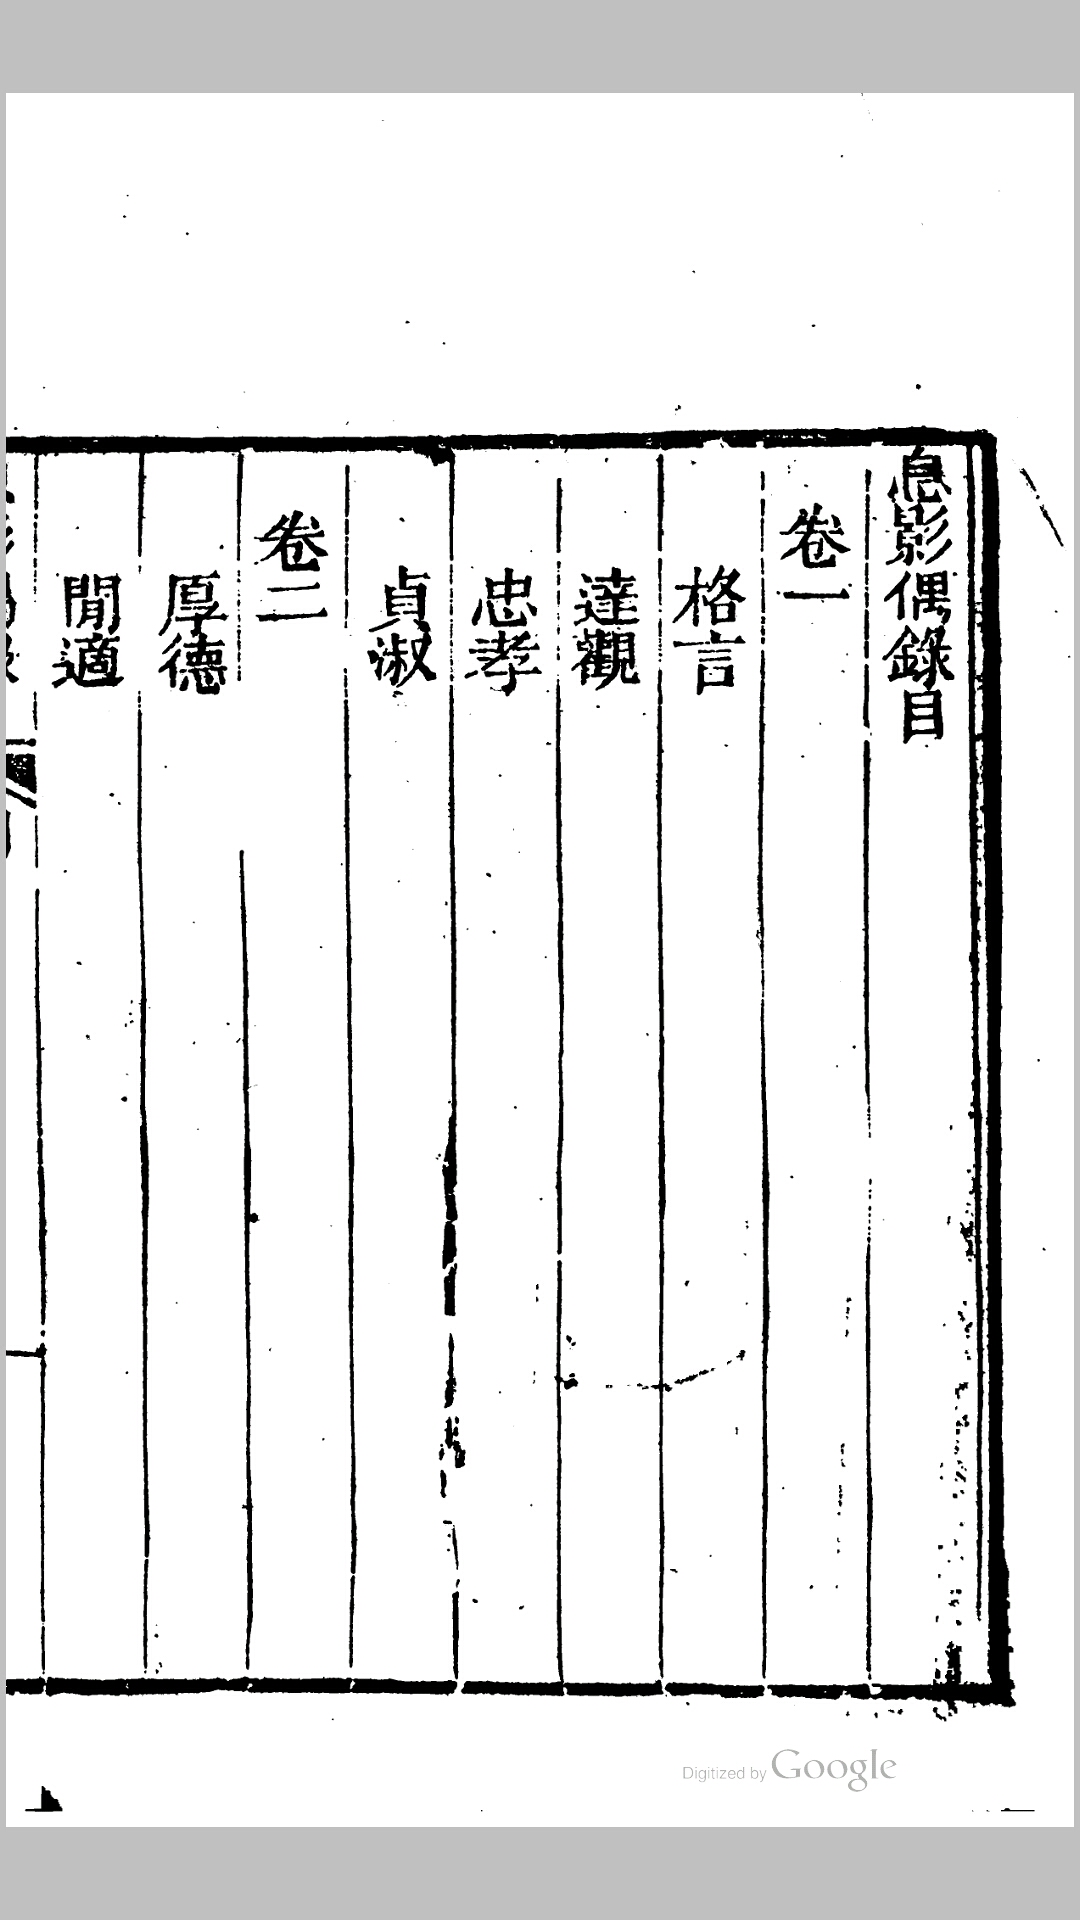 息影偶錄目
卷一
格言
達觀
忠孝
貞淑
卷二
厚德
閒適
Digitized by Google